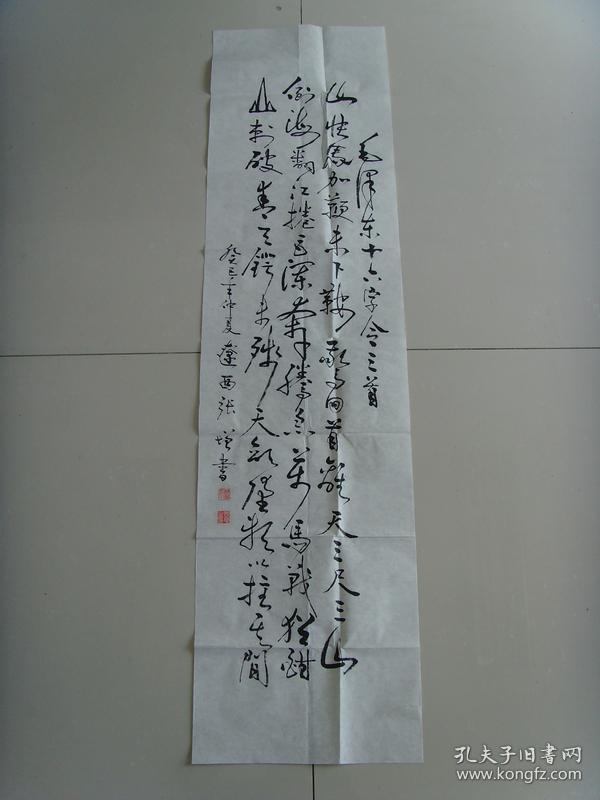 毛澤东十六字令三首
山快馬加鞭未下鞍驚回首離天三尺三山
倒海翻江捲巨澜奔腾急萬馬戰猶酣
山刺破青天鍔未残天欲堕赖以拄其間
癸巳年仲夏遼西張增書
孔夫子旧书网
www.kongfz.com